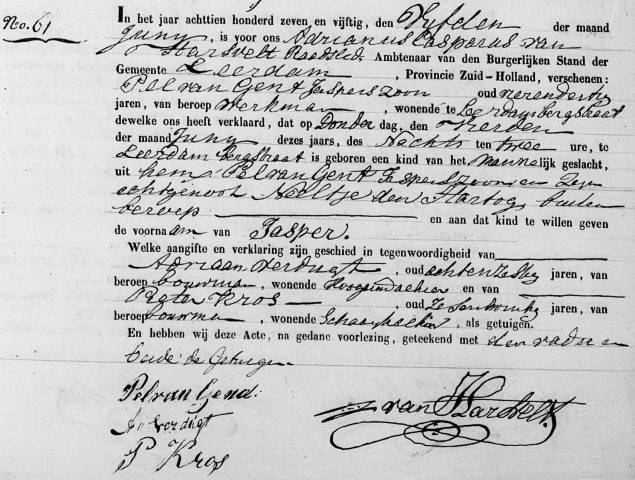 No. 61
In het jaar achttien honderd zeven en vijftig, den Vyfden der maand
Juny, is voor ons Adrianus Casparus van
Harsvelt Raadslid, Ambtenaar van den Burgerlijken Stand der
Gemeente Leerdam, Provincie Zuid-Holland, verschenen:
Pel van Gent Jasperszoon oud vierendertig
jaren, van beroep Werkman, wonende te Leerdam bergstraat
dewelke ons heeft verklaard, dat op Donderdag, den Vierden
der maand Juny dezes jaars, des Nachts ten twee ure, te
Leerdam Bergstraat is geboren een kind van het mannelijk geslacht,
uit hem Pel van Gent Jasperszoon en Zyn
echtgenoot Neeltje den Hartog buiten
beroep en aan dat kind te willen geven
de voornaam van Jasper.
Welke aangifte en verklaring zijn geschied in tegenwoordigheid van
Adriaan Verdugt, oud jaren, van
beroep bouwman, wonende en van
Pieter Kros oud jaren, van
beroep bouwman, wonende, als getuigen.
En hebben wij deze Acte, na gedane voorlezing, geteekend met den vader en
beide de Getuigen.
Pel van Gend:
A Verdugt
P Kros
van Harsvelt